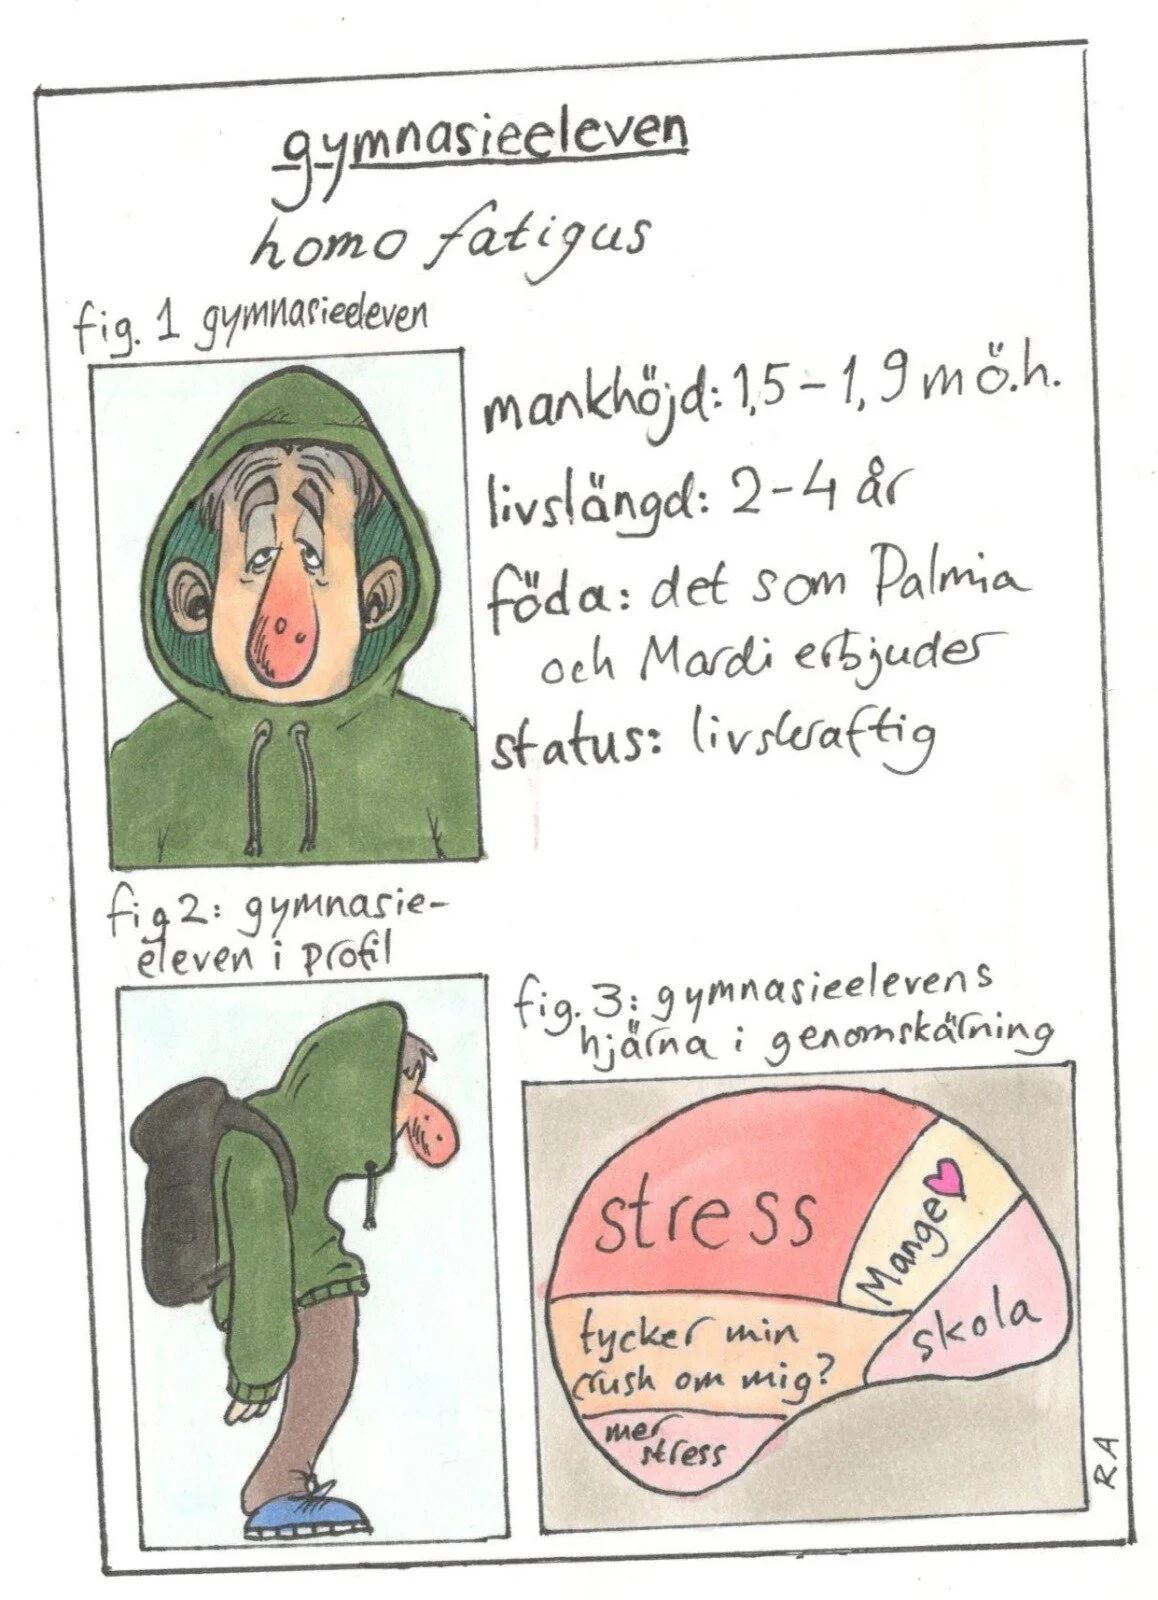 gymnasieeleven
homo fatigus
fig. 1 gymnasieeleven
mankhöjd: 1,5 – 1,9 m ö.h.
livslängd: 2-4 år
föda: det som Palmia
och Mardi erbjuder
status: livskraftig
fig 2: gymnasie-
eleven i profil
fig. 3: gymnasieelevens
hjärna i genomskärning
stress
Mange
skola
tycker min
crush om mig?
mer
stress
RA